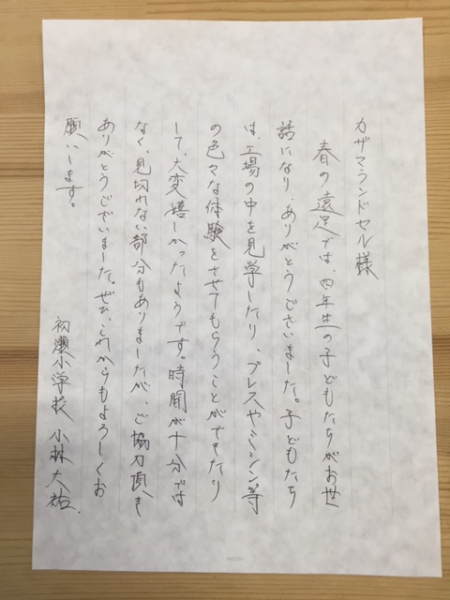 カザマランドセル様
春の遠足では、四年生の子どもたちがお世
話になり、ありがとうございました。子どもたち
は、工場の中を見学したり、プレスやミシン等
の色々な体験をさせてもらうことができたり
して、大変嬉しかったようです。時間が十分では
なく、見切れない部分もありましたが、ご協力頂き
ありがとうございました。ぜひ、これからもよろしくお
願いします。
初瀬小学校 小林大祐